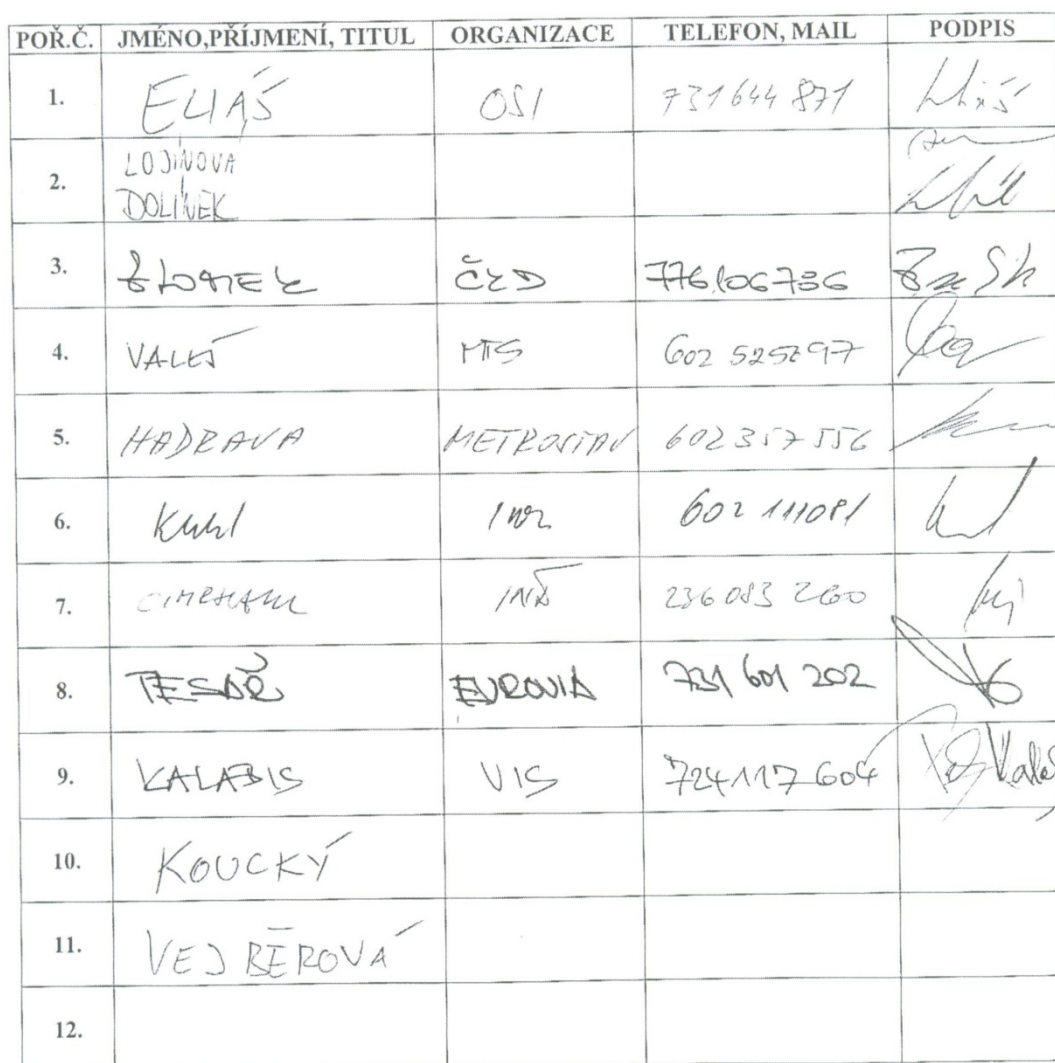 POŘ.Č. JMÉNO,PŘÍJMENÍ, TITUL ORGANIZACE TELEFON, MAIL PODPIS
1. ELIÁŠ OSI 731644 871
2. LOJÍNOVA
DOLÍNEK
3. 776106736
4. VALEŠ MTS 602 525297
5. HADRAVA METROSTAV 602 357 556
6. 602 111081
7. 236 083 260
8. TESAŘ EUROVIA 731 601 202
9. KALABIS VIS 724117 604
10. KOUCKÝ
11. VEJBĚROVÁ
12.